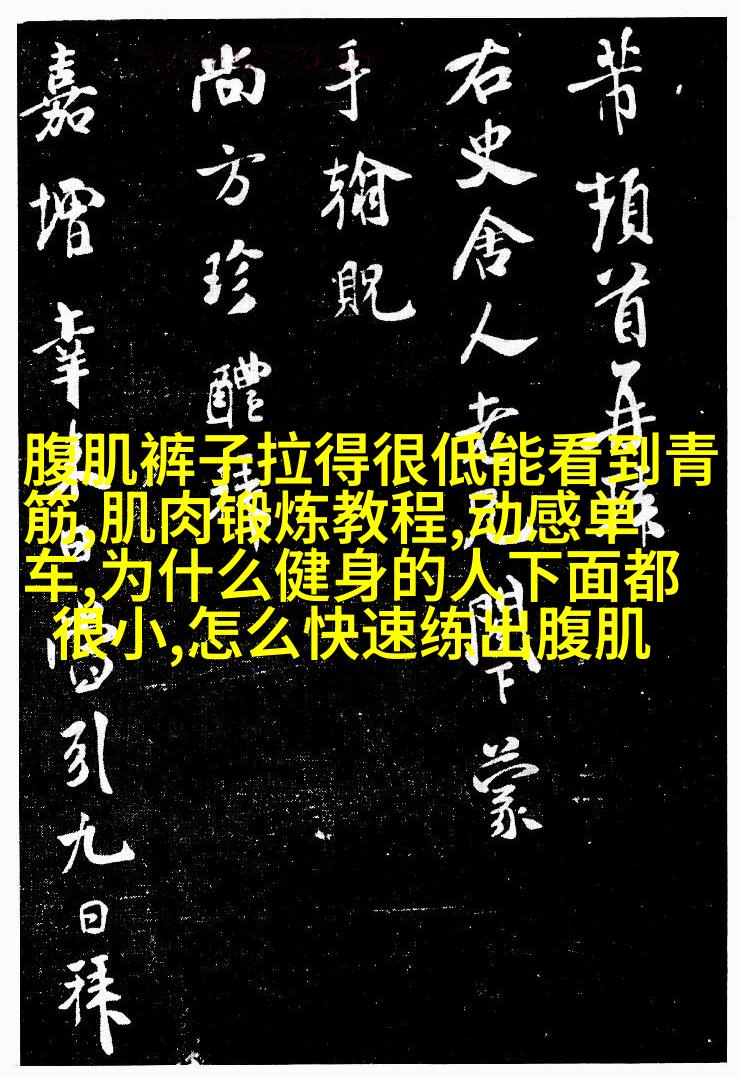 芾頓首再拜
右史舍人老兄閤下蒙
手翰貺
尚方珍醴拜
嘉增幸来日當引九日拜
腹肌裤子拉得很低能看到青
筋,肌肉锻炼教程,动感单
车,为什么健身的人下面都
很小,怎么快速练出腹肌